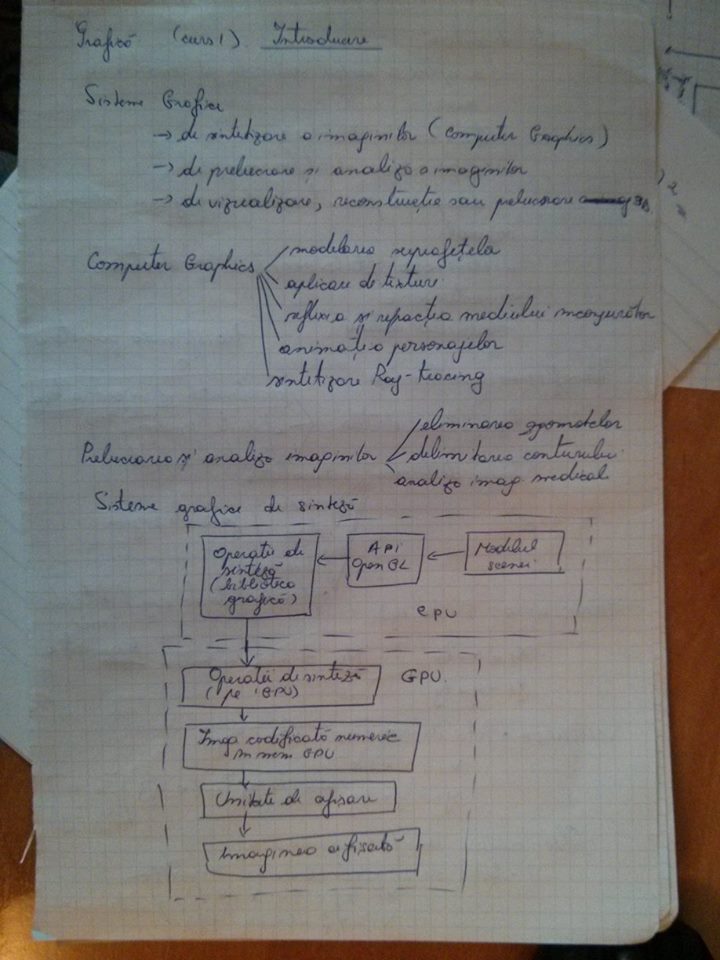 Grafică (curs 1) Introducere
Sisteme Grafice
→ de sintetizare a imaginilor (Computer Graphics)
→ de prelucrare și analiza a imaginilor
→ de vizualizare, reconstrucție sau prelucrare 3D
Computer Graphics
modelarea suprafețelor
aplicare de texturi
reflexia și refracția mediului inconjurător
animația personajelor
sintetizare Ray-tracing
Prelucrarea și analiza imaginilor
eliminarea zgomotelor
delimitarea conturului
analiza imag medicale
Sisteme grafice de sinteză
Operații de sinteză (biblioteca grafică)
API OpenGL
Modelul scenei
CPU
Operații de sinteză (pe GPU)
GPU
Imag codificată numeric in mem GPU
Unitate de afisare
Imaginea afisată